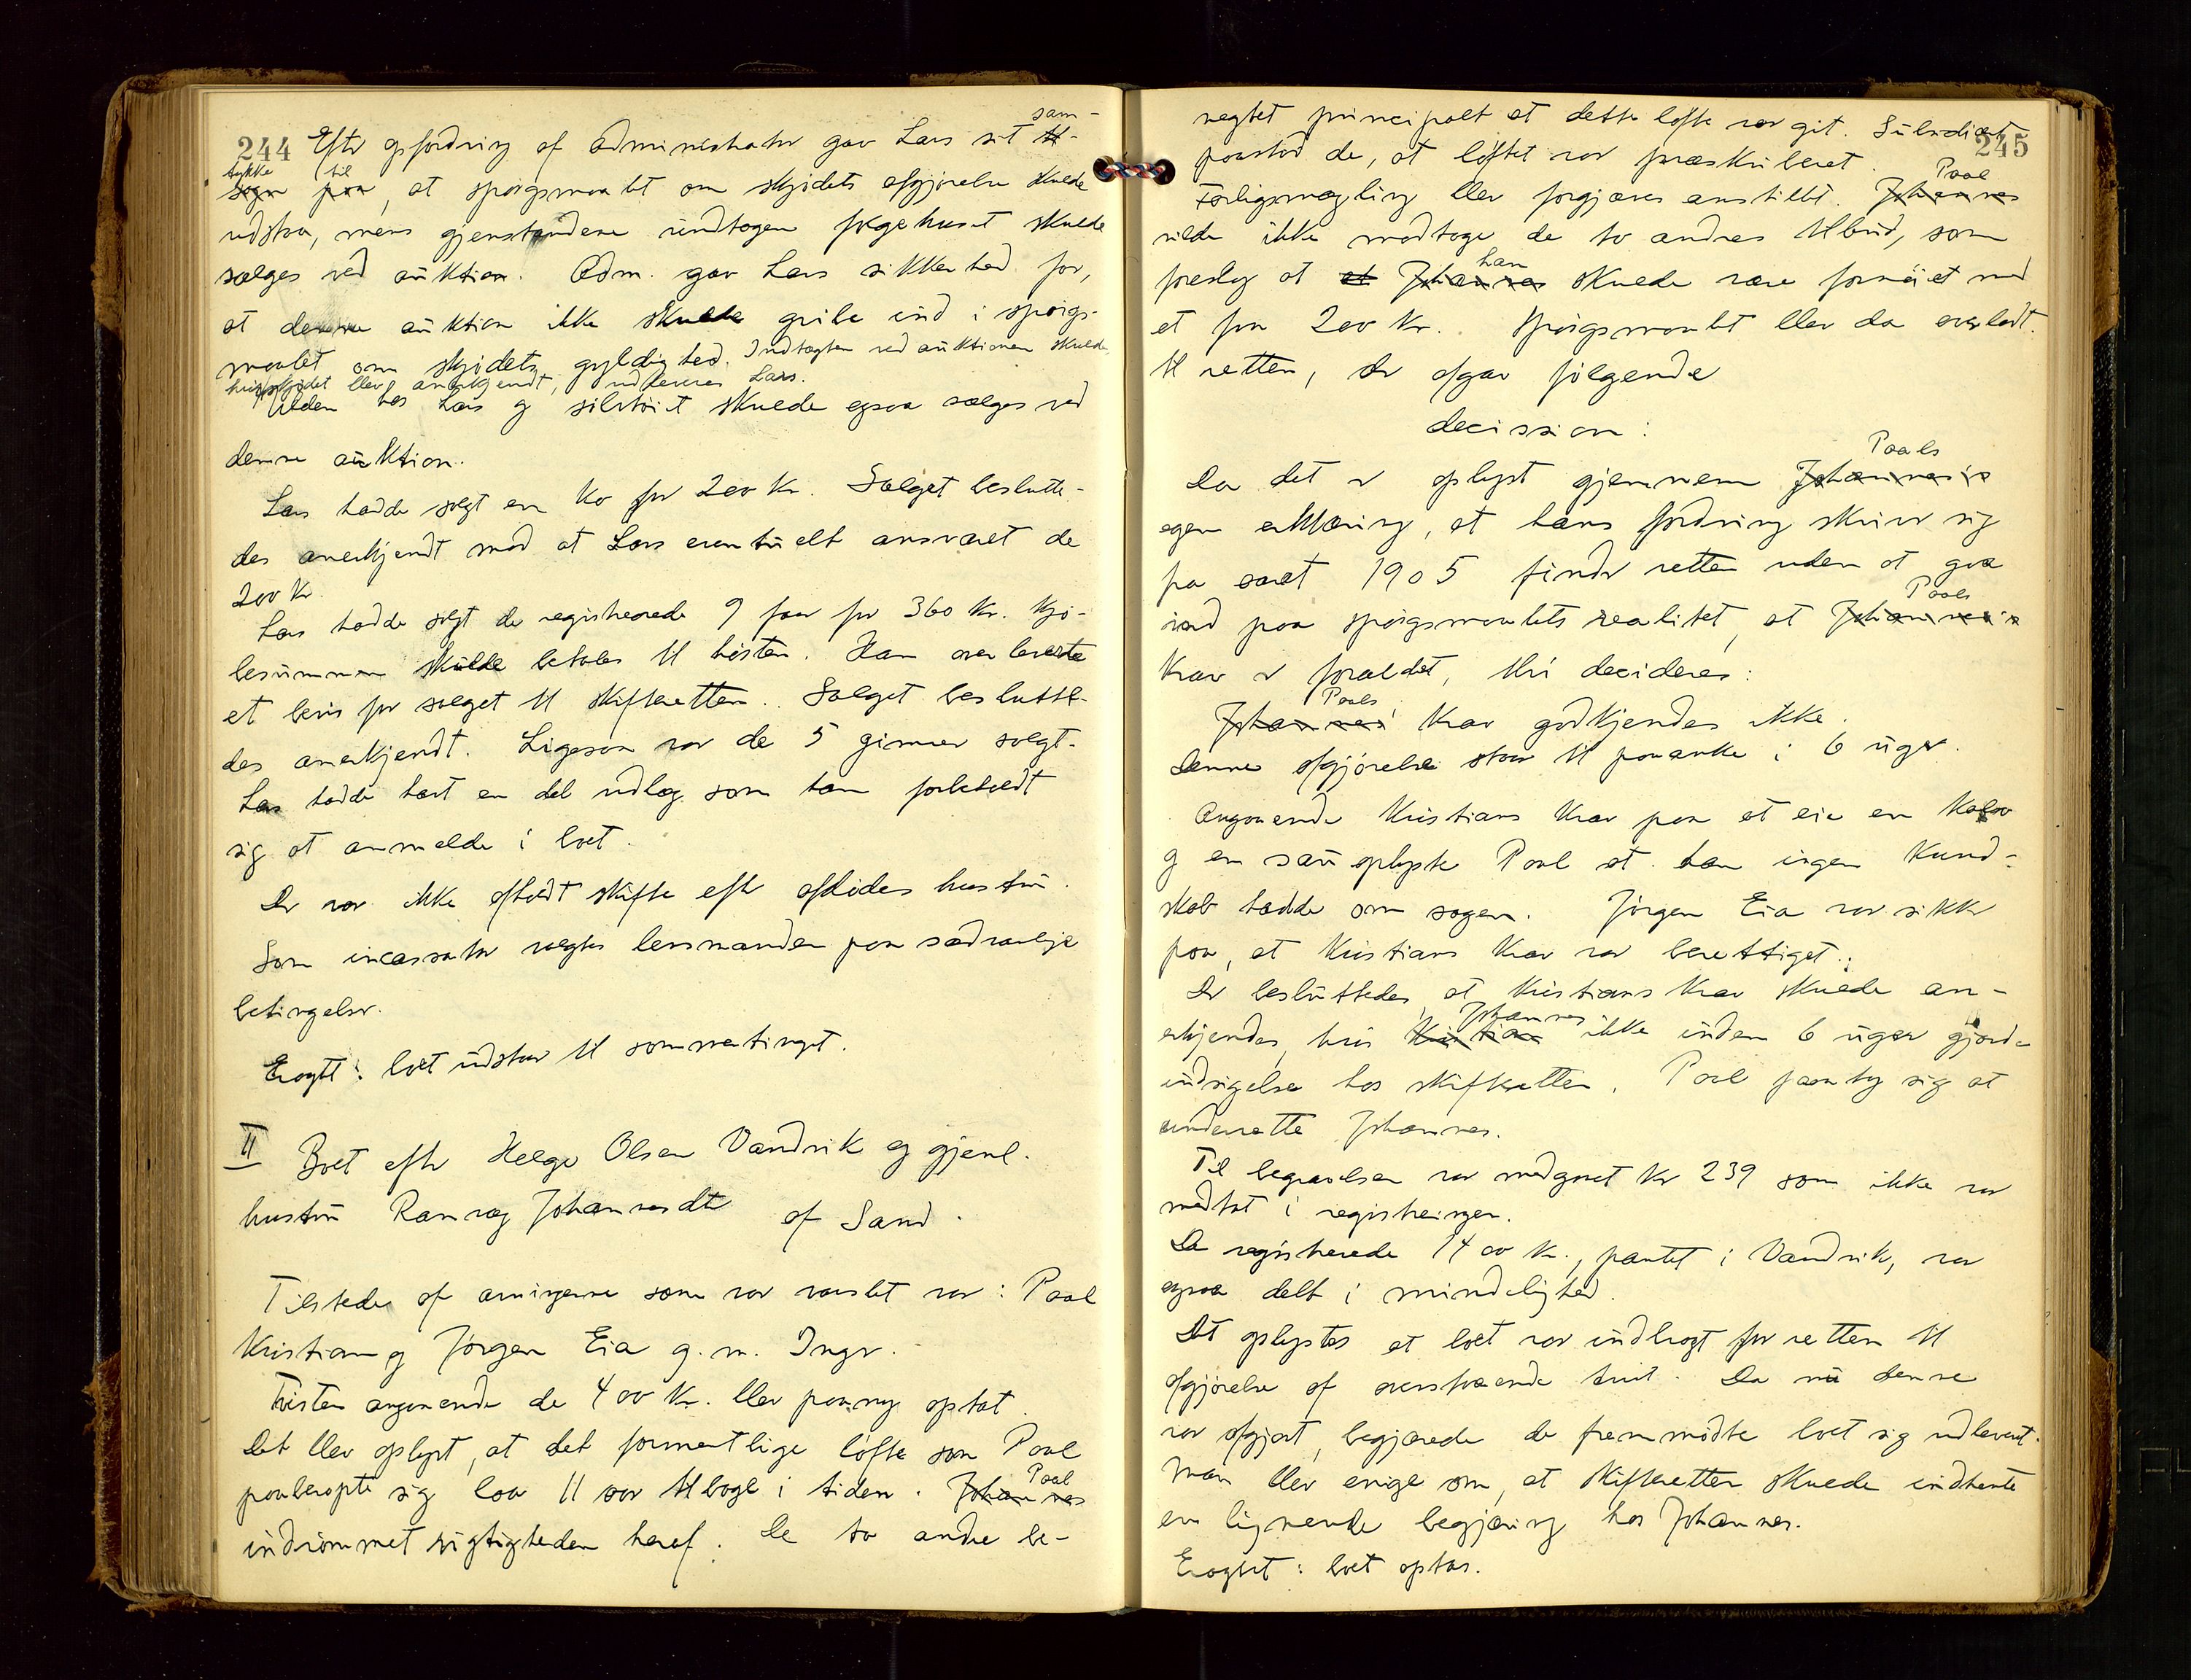 244 Efter opfordring af administrator gav Lars sit sam-
tykke til at spørgsmaalet om skjødets afgjørelse skulde
udstaa, mens gjenstandene undtagen følgehuset skulde
sælges ved auktion. Adm. gav Lars sikkerhed for,
at denne auktion ikke skulde gribe ind i spørgs-
maalet om skjødets gyldighed. Indtægten ved auktionen skulde,
hvis skjødet blev anerkjendt, udleveres Lars.
Ulden hos Lars og sølvtøiet skulde ogsaa sælges ved
denne auktion.
Lars hadde solgt en ko for 200 kr. Salget beslutte-
des anerkjendt mod at Lars eventuelt ansvaret de
200 kr.
Lars hadde solgt de registrerede 9 faar for 360 kr. Kjø-
besummen skulde betales til høsten. Han overleverte
et bevis for salget til skifteretten. Salget beslutte-
des anerkjendt. Ligesaa var de 5 gimrer solgt.
Lars hadde havt en del udlæg som han forbeholdt
sig at anmelde i boet.
Der var ikke afholdt skifte efter afdødes hustru.
Som incassator valgtes lensmanden paa sædvanlige
betingelser.
Eragtet: boet udstaar til sommertinget.
II Boet efter Helge Olsen Vandvik og gjenl.
hustru Ranveg Johannesdtr af Sand.
Tilstede af arvingerne som var varslet var: Paal
Kristian og Jørgen Eia g. m. Ingr.
Tvisten angaaende de 400 kr. blev paany optat.
Det blev oplyst, at det formentlige løfte som Paal
paaberopte sig laa 11 aar tilbage i tiden. Johannes Paal
indrømmet rigtigheden heraf. De to andre be-
245
negtet principalt at dette løfte var git. Subsidiært
paastod de, at løftet var præskriberet.
Forligsmægling blev forgjæves anstillet. Johannes Paal
vilde ikke modtage de to andres tilbud, som
foreslog at et Johannes han skulde være fornøiet med
at faa 200 kr. Spørgsmaalet blev da overladt
til retten, der afgav følgende
decission:
Da det er oplyst gjennem Johannes's Paals
egen erklæring, at hans fordring skriver sig
fra aaret 1905 finder retten uden at gaa
ind paa spørgsmaalets realitet, at Johannes's Paals
krav er forældet, thi decideres:
Johannes' Paals krav godkjendes ikke.
Denne afgjørelse staar til paaanke i 6 uger.
Angaaende Kristians krav paa at eie en kalv
og en sau oplyste Paal at han ingen kund-
skab hadde om sagen. Jørgen Eia var sikker
paa, at Kristians krav var berettiget.
Der besluttedes at Kristians krav skulde an-
erkjendes, hvis Kristian Johannes ikke inden 6 uger gjorde
indsigelse hos skifteretten. Paal paatog sig at
underrette Johannes.
Til begravelsen var medgaaet kr 239 som ikke var
medtat i registreringen.
De registrerede 1400 kr., pantet i Vandvik, var
ogsaa delt i mindelighed.
Det oplystes at boet var indbragt for retten til
afgjørelse af ovenstaaende tvist. Da nu denne
var afgjort, begjærede de fremmødte boet sig udleveret.
Man blev enige om, at skifteretten skulde indhente
en lignende begjæring hos Johannes.
Eragtet: boet optas.